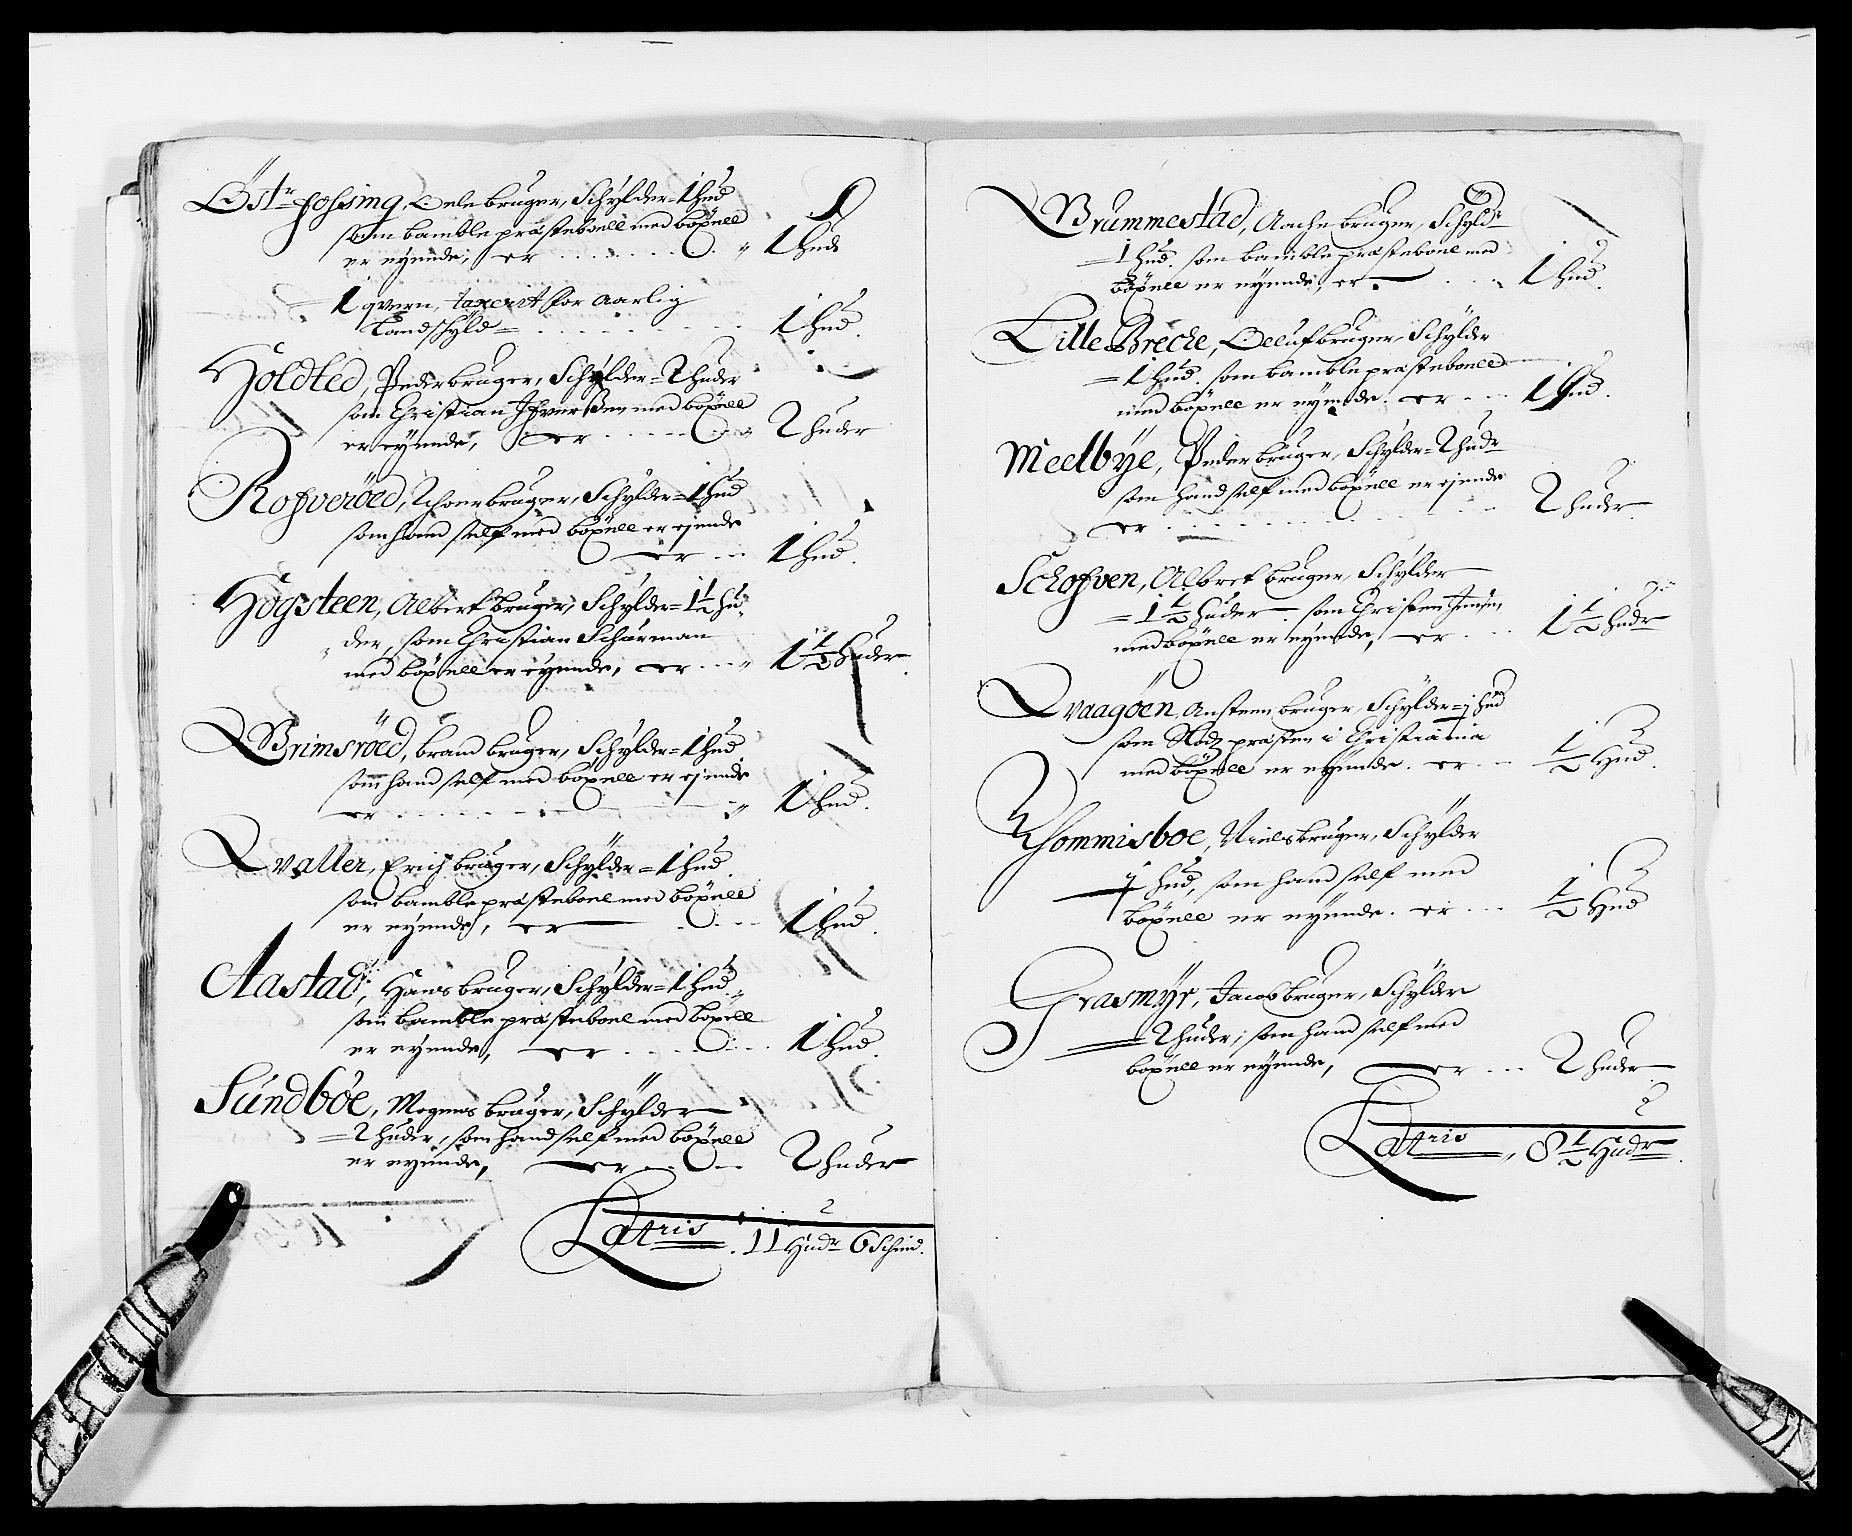 Östr fossing, Oele bruger, Schylder = 1 hud
som bamble præsteboell med böxell
er eyende, er . . . . . . . 1 hude
1 qvern, taxerit for aarlig
Landschyld = . . . . . . 1 hud.
Holdted, Peder bruger, Schylder = 2 huder
som Christian Ifversen med böxell
er eyende, er . . . . . 2 huder
Rofveröed, bruger, Schylder = 1 hud
som hand self med böxell er ejende
er . . 1 hud.
Högsteen, Albert bruger, Schylder = 1 1/2 hu-
der, som Christian Schörman
med böxell er eyende, er . . . 1 1/2 huder.
Brimsröed, brand bruger, Schylder = 1 hud
som hand self med böxell er ejende
er . . . . . . . 1 hud.
Qvaller, Erich bruger, Schylder = 1 hud.
som bamble præsteboel med böxell
er eyende, er . . . . 1 hud.
Aastad, Hans bruger, Schylder = 1 hud
som bamble præsteboel med böxell
er eyende, er . . . . . . 1 hud.
Sundböe, Mogens bruger, Schylder
= 2 huder, som hand self med böxell
er eyende, er . . . 2 huder
Latris . 11 Hudr 6 Schind.
Brummestad, Aache bruger, Schyldr
= 1 hud. som bamble præsteboel med
böxell er eyende, er . . . 1 hud.
Lille Breche, Oeluf bruger, Schylder
= 1 hud. som bamble præsteboell
med böxell er eyende. er . . . 1 hud.
Meelbye, Peder bruger, Schylder = 2 hudr
som hand self med böxell er ejende
er . . . . . . . . . . . 2 huder.
Schofven, Albret bruger, Schylder
= 1 1/2 huder. som Christen Jensen
med böxell er eyende, er . . . 1 1/2 hudr
Qvaagöen, Ansteen bruger, Schylder = 1/2 hud
som præsten i Christiania
med böxell er eyende. er . . . 1/2 Hud.
Rommisboe, Niels bruger, Schylder
1/2 hud, som hand self med
böxell er eyende. er . . . 1/2 Hud
Grasmyr, Jacob bruger, Schylder
= 2 huder, som hand self med
böxell er eyende, er . . . 2 huder
Latris, 8 1/2 Hudr.